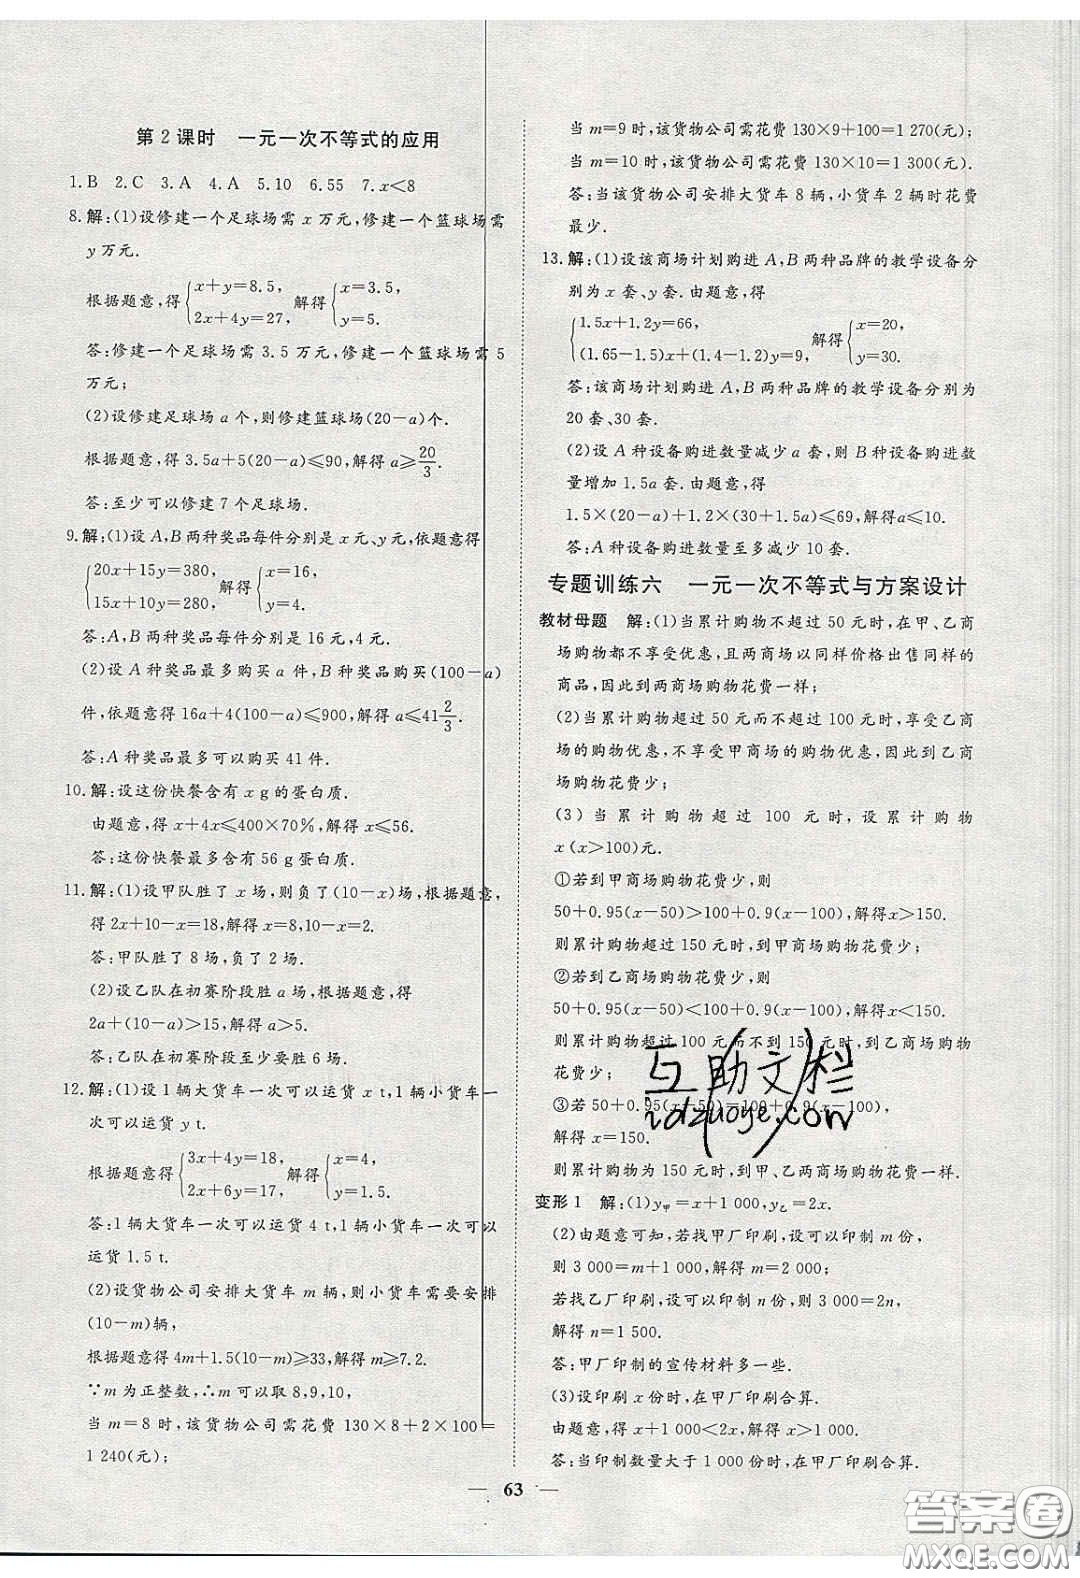 第2课时 一元一次不等式的应用
1.B 2.C 3.A 4.A 5.10 6.55 7.x<8
8.解:(1)设修建一个足球场需 x 万元,修建一个篮球场需
y 万元.
根据题意,得{x+y=8.5, 2x+4y=27, 解得{x=3.5, y=5.
答:修建一个足球场需 3.5 万元,修建一个篮球场需 5
万元;
(2)设修建足球场 a 个,则修建篮球场(20-a)个.
根据题意,得 3.5a+5(20-a)≤90,解得 a≥20/3.
答:至少可以修建 7 个足球场.
9.解:(1)设 A,B 两种奖品每件分别是 x 元、y 元,依题意得
{20x+15y=380, 15x+10y=280, 解得{x=16, y=4.
答:A,B 两种奖品每件分别是 16 元,4 元.
(2)设 A 种奖品最多购买 a 件,B 种奖品购买(100-a)
件,依题意得 16a+4(100-a)≤900,解得 a≤41 2/3.
答:A 种奖品最多可以购买 41 件.
10.解:设这份快餐含有 x g 的蛋白质.
由题意,得 x+4x≤400×70%,解得 x≤56.
答:这份快餐最多含有 56 g 蛋白质.
11.解:(1)设甲队胜了 x 场,则负了(10-x)场,根据题意,
得 2x+10-x=18,解得 x=8,10-x=2.
答:甲队胜了 8 场,负了 2 场.
(2)设乙队在初赛阶段胜 a 场,根据题意,得
2a+(10-a)>15,解得 a>5.
答:乙队在初赛阶段至少要胜 6 场.
12.解:(1)设 1 辆大货车一次可以运货 x t,1 辆小货车一
次可以运货 y t.
根据题意得{3x+4y=18, 2x+6y=17, 解得{x=4, y=1.5.
答:1 辆大货车一次可以运货 4 t,1 辆小货车一次可以
运货 1.5 t.
(2)设货物公司安排大货车 m 辆,则小货车需要安排
(10-m)辆,
根据题意得 4m+1.5(10-m)≥33,解得 m≥7.2.
∵m 为正整数,∴m 可以取 8,9,10,
当 m=8 时,该货物公司需花费 130×8+2×100=
1 240(元);
当 m=9 时,该货物公司需花费 130×9+100=1 270(元)
当 m=10 时,该货物公司需花费 130×10=1 300(元).
答:当该货物公司安排大货车 8 辆,小货车 2 辆时花费
最少.
13.解:(1)设该商场计划购进 A,B 两种品牌的教学设备分
别为 x 套、y 套.由题意,得
{1.5x+1.2y=66, (1.65-1.5)x+(1.4-1.2)y=9, 解得{x=20, y=30.
答:该商场计划购进 A,B 两种品牌的教学设备分别为
20 套、30 套.
(2)设 A 种设备购进数量减少 a 套,则 B 种设备购进数
量增加 1.5a 套.由题意,得
1.5×(20-a)+1.2×(30+1.5a)≤69,解得 a≤10.
答:A 种设备购进数量至多减少 10 套.
专题训练六 一元一次不等式与方案设计
教材母题 解:(1)当累计购物不超过 50 元时,在甲、乙商
场购物都不享受优惠,且两商场以同样价格出售同样的
商品,因此到两商场购物花费一样;
(2)当累计购物超过 50 元而不超过 100 元时,享受乙商
场的购物优惠,不享受甲商场的购物优惠,因此到乙商
场购物花费少;
(3)当累计购物超过 100 元时,设累计购物
x(x>100)元.
①若到甲商场购物花费少,则
50+0.95(x-50)>100+0.9(x-100),解得 x>150.
则累计购物超过 150 元时,到甲商场购物花费少;
②若到乙商场购物花费少,则
50+0.95(x-50)<100+0.9(x-100),解得 x<150.
则累计购物超过 100 元而不到 150 元时,到乙商场购物
花费少;
③若 50+0.95(x-50)=100+0.9(x-100),
解得 x=150.
则累计购物为 150 元时,到甲、乙两商场购物花费一样.
变形 1 解:(1)y甲=x+1 000,y乙=2x.
(2)由题意可知,若找甲厂印刷,设可以印制 m 份,
则 3 000=m+1 000,解得 m=2 000;
若找乙厂印刷,设可以印制 n 份,则 3 000=2n,
解得 n=1 500.
答:甲厂印制的宣传材料多一些.
(3)设印刷 x 份时,在甲厂印刷合算.
由题意,得 x+1 000<2x,解得 x>1 000.
答:当印制数量大于 1 000 份时,在甲厂印刷合算.
互助文档
lalzuoye.com
— 63 —
答案圈
MXQE.COM